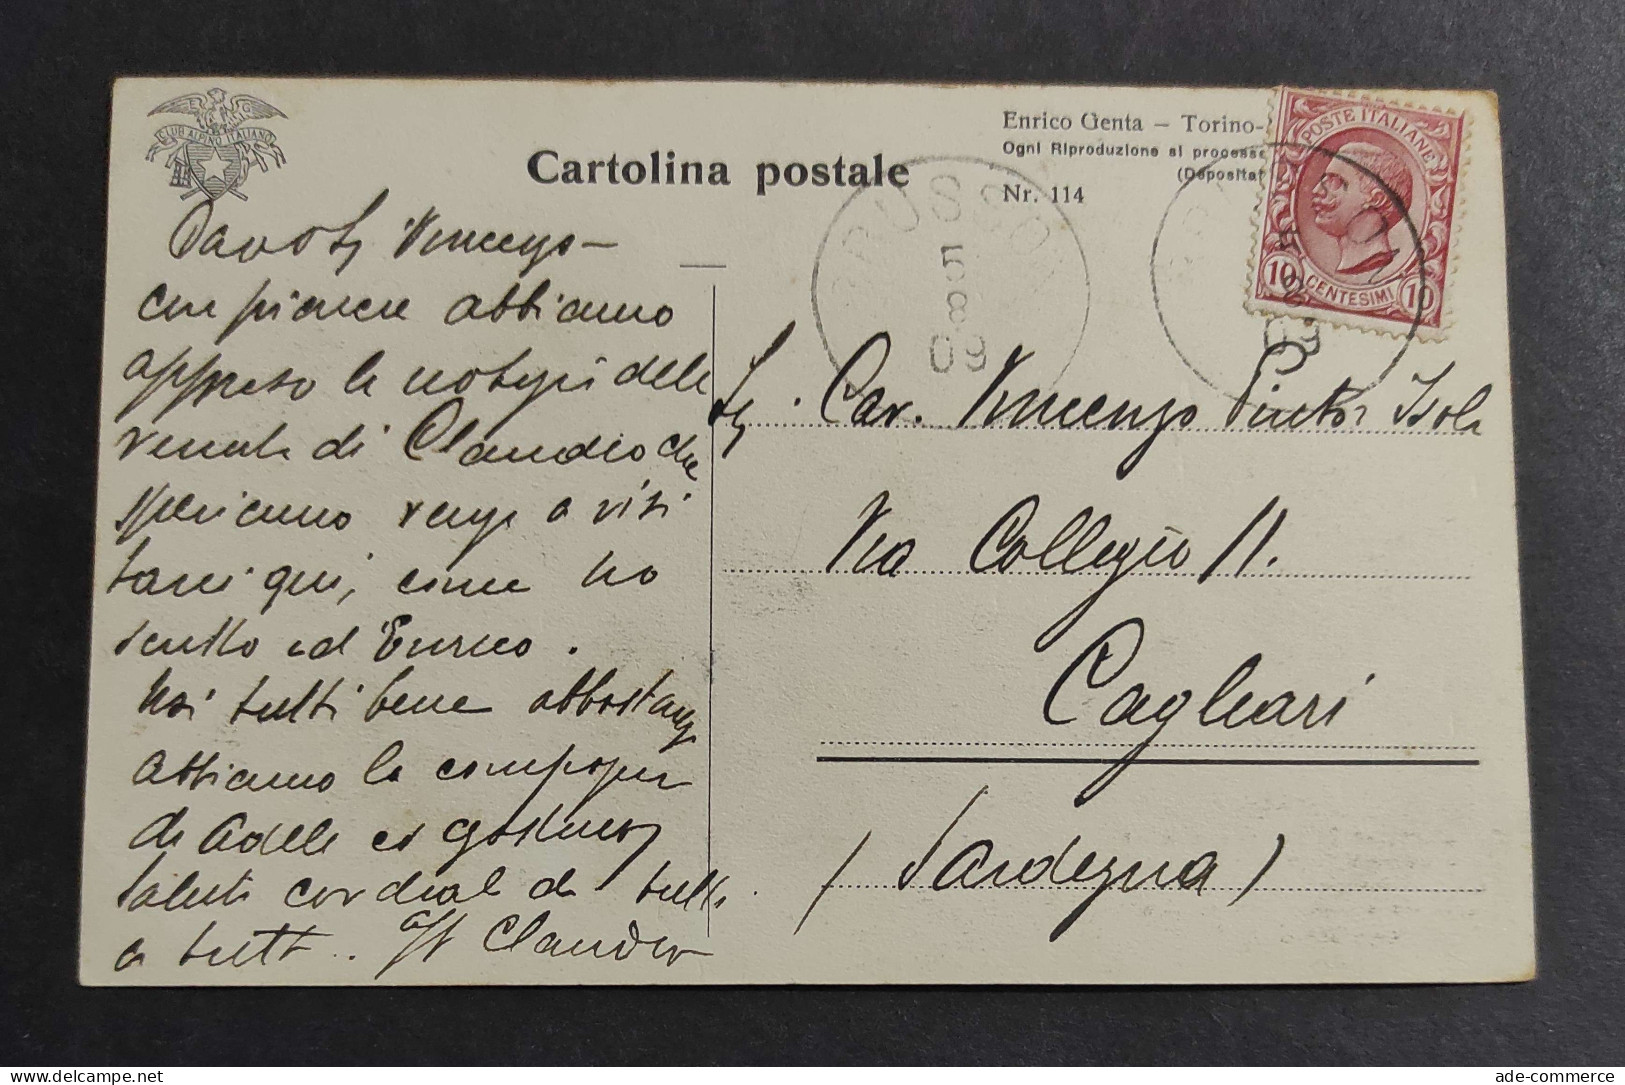 E G
CLUB ALPINO ITALIANO
Cartolina postale
Enrico Genta – Torino-
Ogni Riproduzione si processa
(Deposita
Nr. 114
POSTE ITALIANE
10 CENTESIMI 10
BRUSSON
5
8
09
BRUSSON
5
8
09
Vincenzo –
con piacere abbiamo
appreso la notizia della
venuta di Claudio che
speriamo venga a visi
tarci qui, come ho
scritto ad Enrico.
Noi tutti bene abbastanza
abbiamo la compagnia
di Adele
saluti cordiali da tutti
a tutti. Claudio
Cav. Vincenzo Pintor Isola
Via Collegio 11.
Cagliari
(Sardegna)
ade-commerce